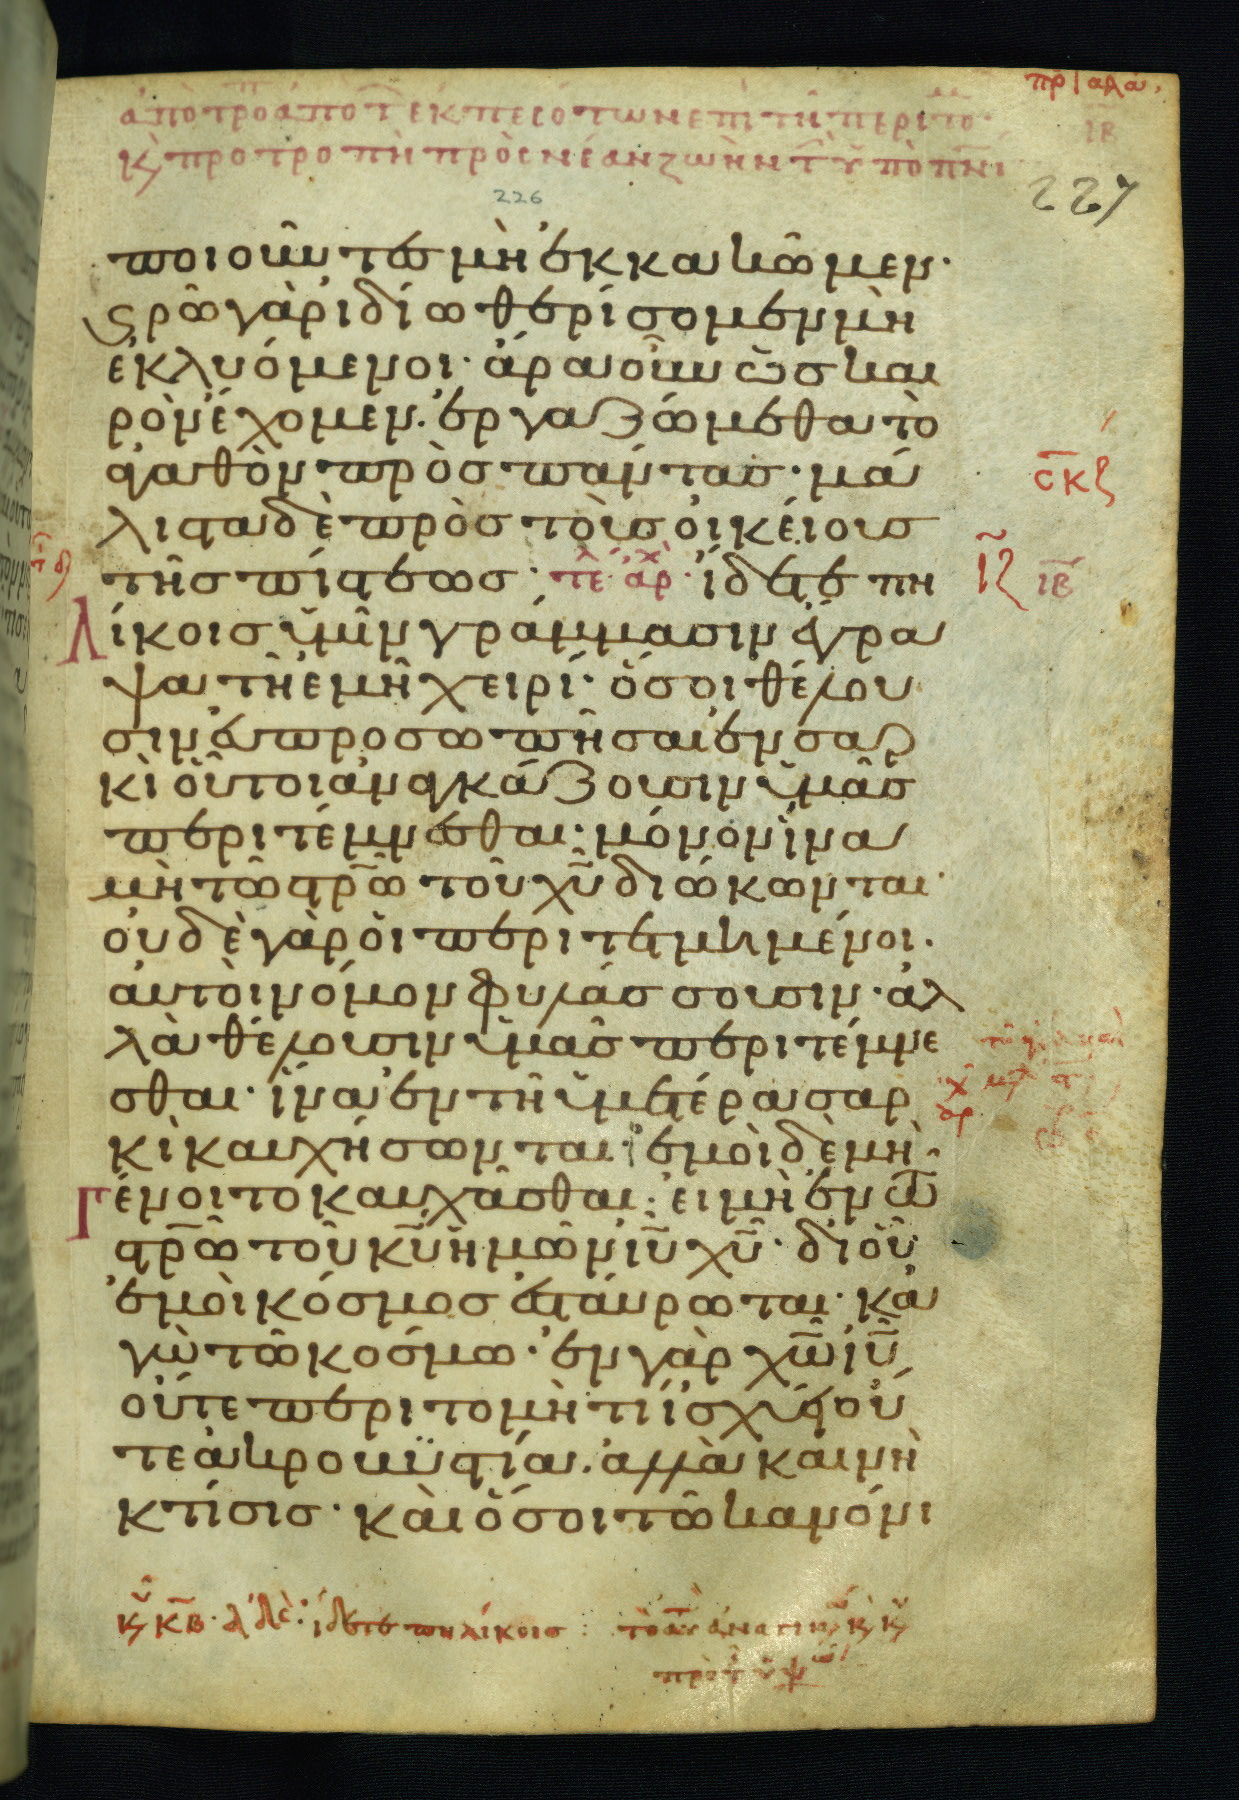 πρ αλα
ἀπὸ τρο ἀποτ ἐκπεσότων ἐπὶ τὴ περιτο
ιβ
κ προτροπὴ πρὸς νέαν ζωὴν τ ὑπὸ πνι
226
227
ποιοῦντες μὴ ἐκκακῶμεν·
ϛρῶ γὰρ ἰδίω θερίσομεν μὴ
ἐκλυόμενοι· ἄρα οὖν ὡς και
ρὸν ἔχομεν· ἐργαζώμεθα τὸ
ἀγαθὸν πρὸς πάντας· μά
σκζ
λιστα δὲ πρὸς τοὺς οἰκείους
τῆς πίστεως· τε αρχ ἴδετε πη
ιζ ιβ
λίκοις ὑμῖν γράμμασιν ἔγρα
ψα τῆ ἐμῆ χειρί· ὅσοι θέλου
σιν εὐπροσωπῆσαι ἐν σαρ
κὶ οὗτοι ἀναγκάζουσιν ὑμᾶς
περιτέμνεσθαι· μόνον ἵνα
μὴ τῶ στρῶ τοῦ χυ διώκωνται·
οὐδὲ γὰρ οἱ περιτετμημένοι·
αὐτοὶ νόμον φυλάσσουσιν· ἀλ
λὰ θέλουσιν ὑμᾶς περιτέμνε
σθαι· ἵνα ἐν τῆ ὑμετέρα σαρ
κὶ καυχήσωνται· ἐμοὶ δὲ μὴ
γένοιτο καυχᾶσθαι· εἰ μὴ ἐν τῶ
στρῶ τοῦ κυ ἡμῶν ιυ χυ· δι οὗ
ἐμοὶ κόσμος ἐσταύρωται· κἀ
γὼ τῶ κόσμω· ἐν γὰρ χω ιυ
οὔτε περιτομὴ τι ἰσχύει οὔ
τε ἀκροβυστία· ἀλλὰ καινὴ
κτίσις· καὶ ὅσοι τῶ κανόνι
κυ κβ· ἀδε· ἴδετε πηλίκοις :